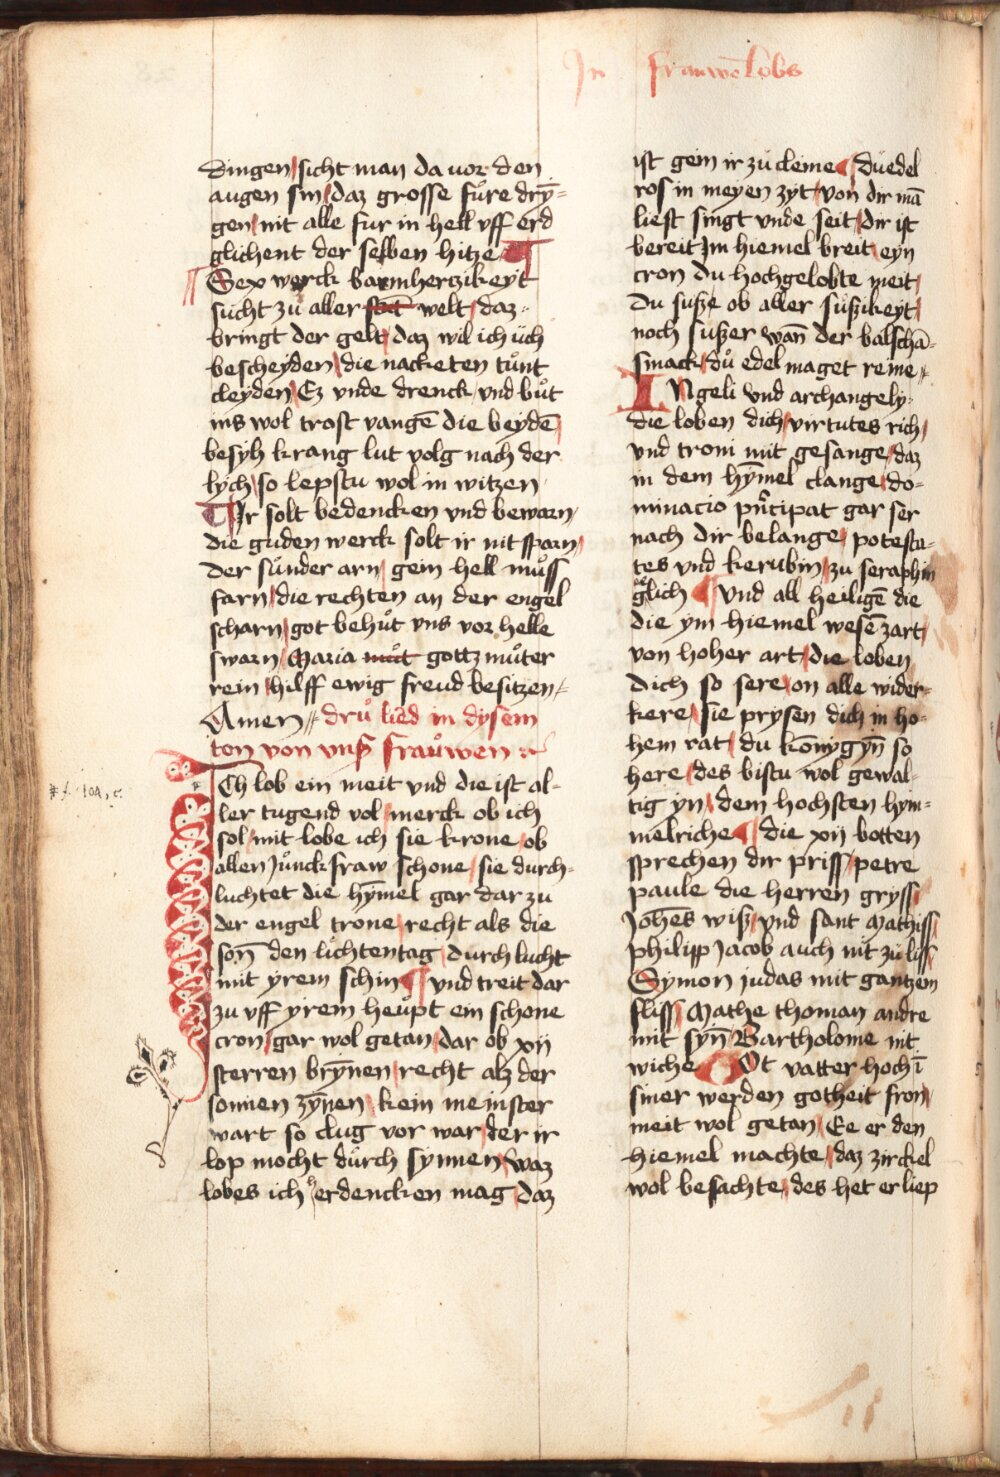 In frauwe͞ lobs
dingen / sicht man da vor den
augen sin / daz grosse fu̍re dry̅=
gen / nit alle fur in hell vff erd
glichent der selben hitze
Sex werck barmhertzikeyt
sücht zü aller welt / daz
bringt der gelt / daz wil ich üch
bescheyden / die nacketen tůnt
cleyden / Ez vnde drenck vnd bůt
ins wol trost vange̅ die beyde̅ /
besyh krang lut volg nach der
lych / so lepstu wol in witzen
Ir solt bedencken vnd bewarn /
die guden werck solt ir nit sparn /
der sünder arn / gein hell můss
farn / die rechten an der engel
scharn / got behüt vns vor helle
swarn / Maria můt gottz můter
rein / hilff ewig freud besitzen //
Amen // drů lied in dysem
ton von vnß fraůwen
Ich lob ein meit vnd die ist al=
ler tugend vol / merck ob ich
sol / mit lobe ich sie krone / ob
allen Jůnckfraw schone / sie durch=
luchtet die hy̅mel gar dar zu
der engel trone / recht als die
son̅ den lichten tag / durchlucht
mit yrem schin / vnd treit dar
zu vff yrem heůpt ein schone
cron / gar wol getan / dar ob xij
sterren bry̅nen / recht alz der
sonnen zy̅nen / kein meinster
wart so clug vor war / der ir
lop mocht dürch synnen / waz
lobes ich erdencken mag / daz
ist gein ir zü cleine / Du edel
ros in meyen zyt / von dir ma̅
liest singt vnde seit / dir ist
bereit Im hiemel breit / eyn
cron du hochgelobte meit /
Du suße ob aller süßikeyt /
noch sußer wan̅ der balscha̅=
smack / dů edel maget reine //
ANgeli vnd archangely
die loben dich / virtutes rich /
vnd troni mit gesange / daz
in dem hy̅mel clange / do=
minacio pn̅cipat gar ser
nach dir belange / potesta=
tes vnd kerubin / zu seraphin
glich / Vnd all heilige̅ die
die ym hiemel wese̅ zart /
von hoher art / die loben
dich so sere / on alle wider=
kere / sie prysen dich in ho=
hem rat / du konygy̅n so
here / des bistu wol gewal=
tig yn / dem hochsten hym=
melriche / die xij botten
sprechen dir priss / petre
paule die herren gryss /
Joh̅es wiß / vnd sant Mathiss /
philipp Jacob auch nit zü liss /
Symon judas mit gantzem
fliss / Mathe thoman andre
mit syn̅ Bartholome nit
wiche / Got vatter hoch i̅
siner werden gotheit fron /
meit wol getan / Ee er den
hiemel machte / daz zirckel
wol besachte / des het er liep